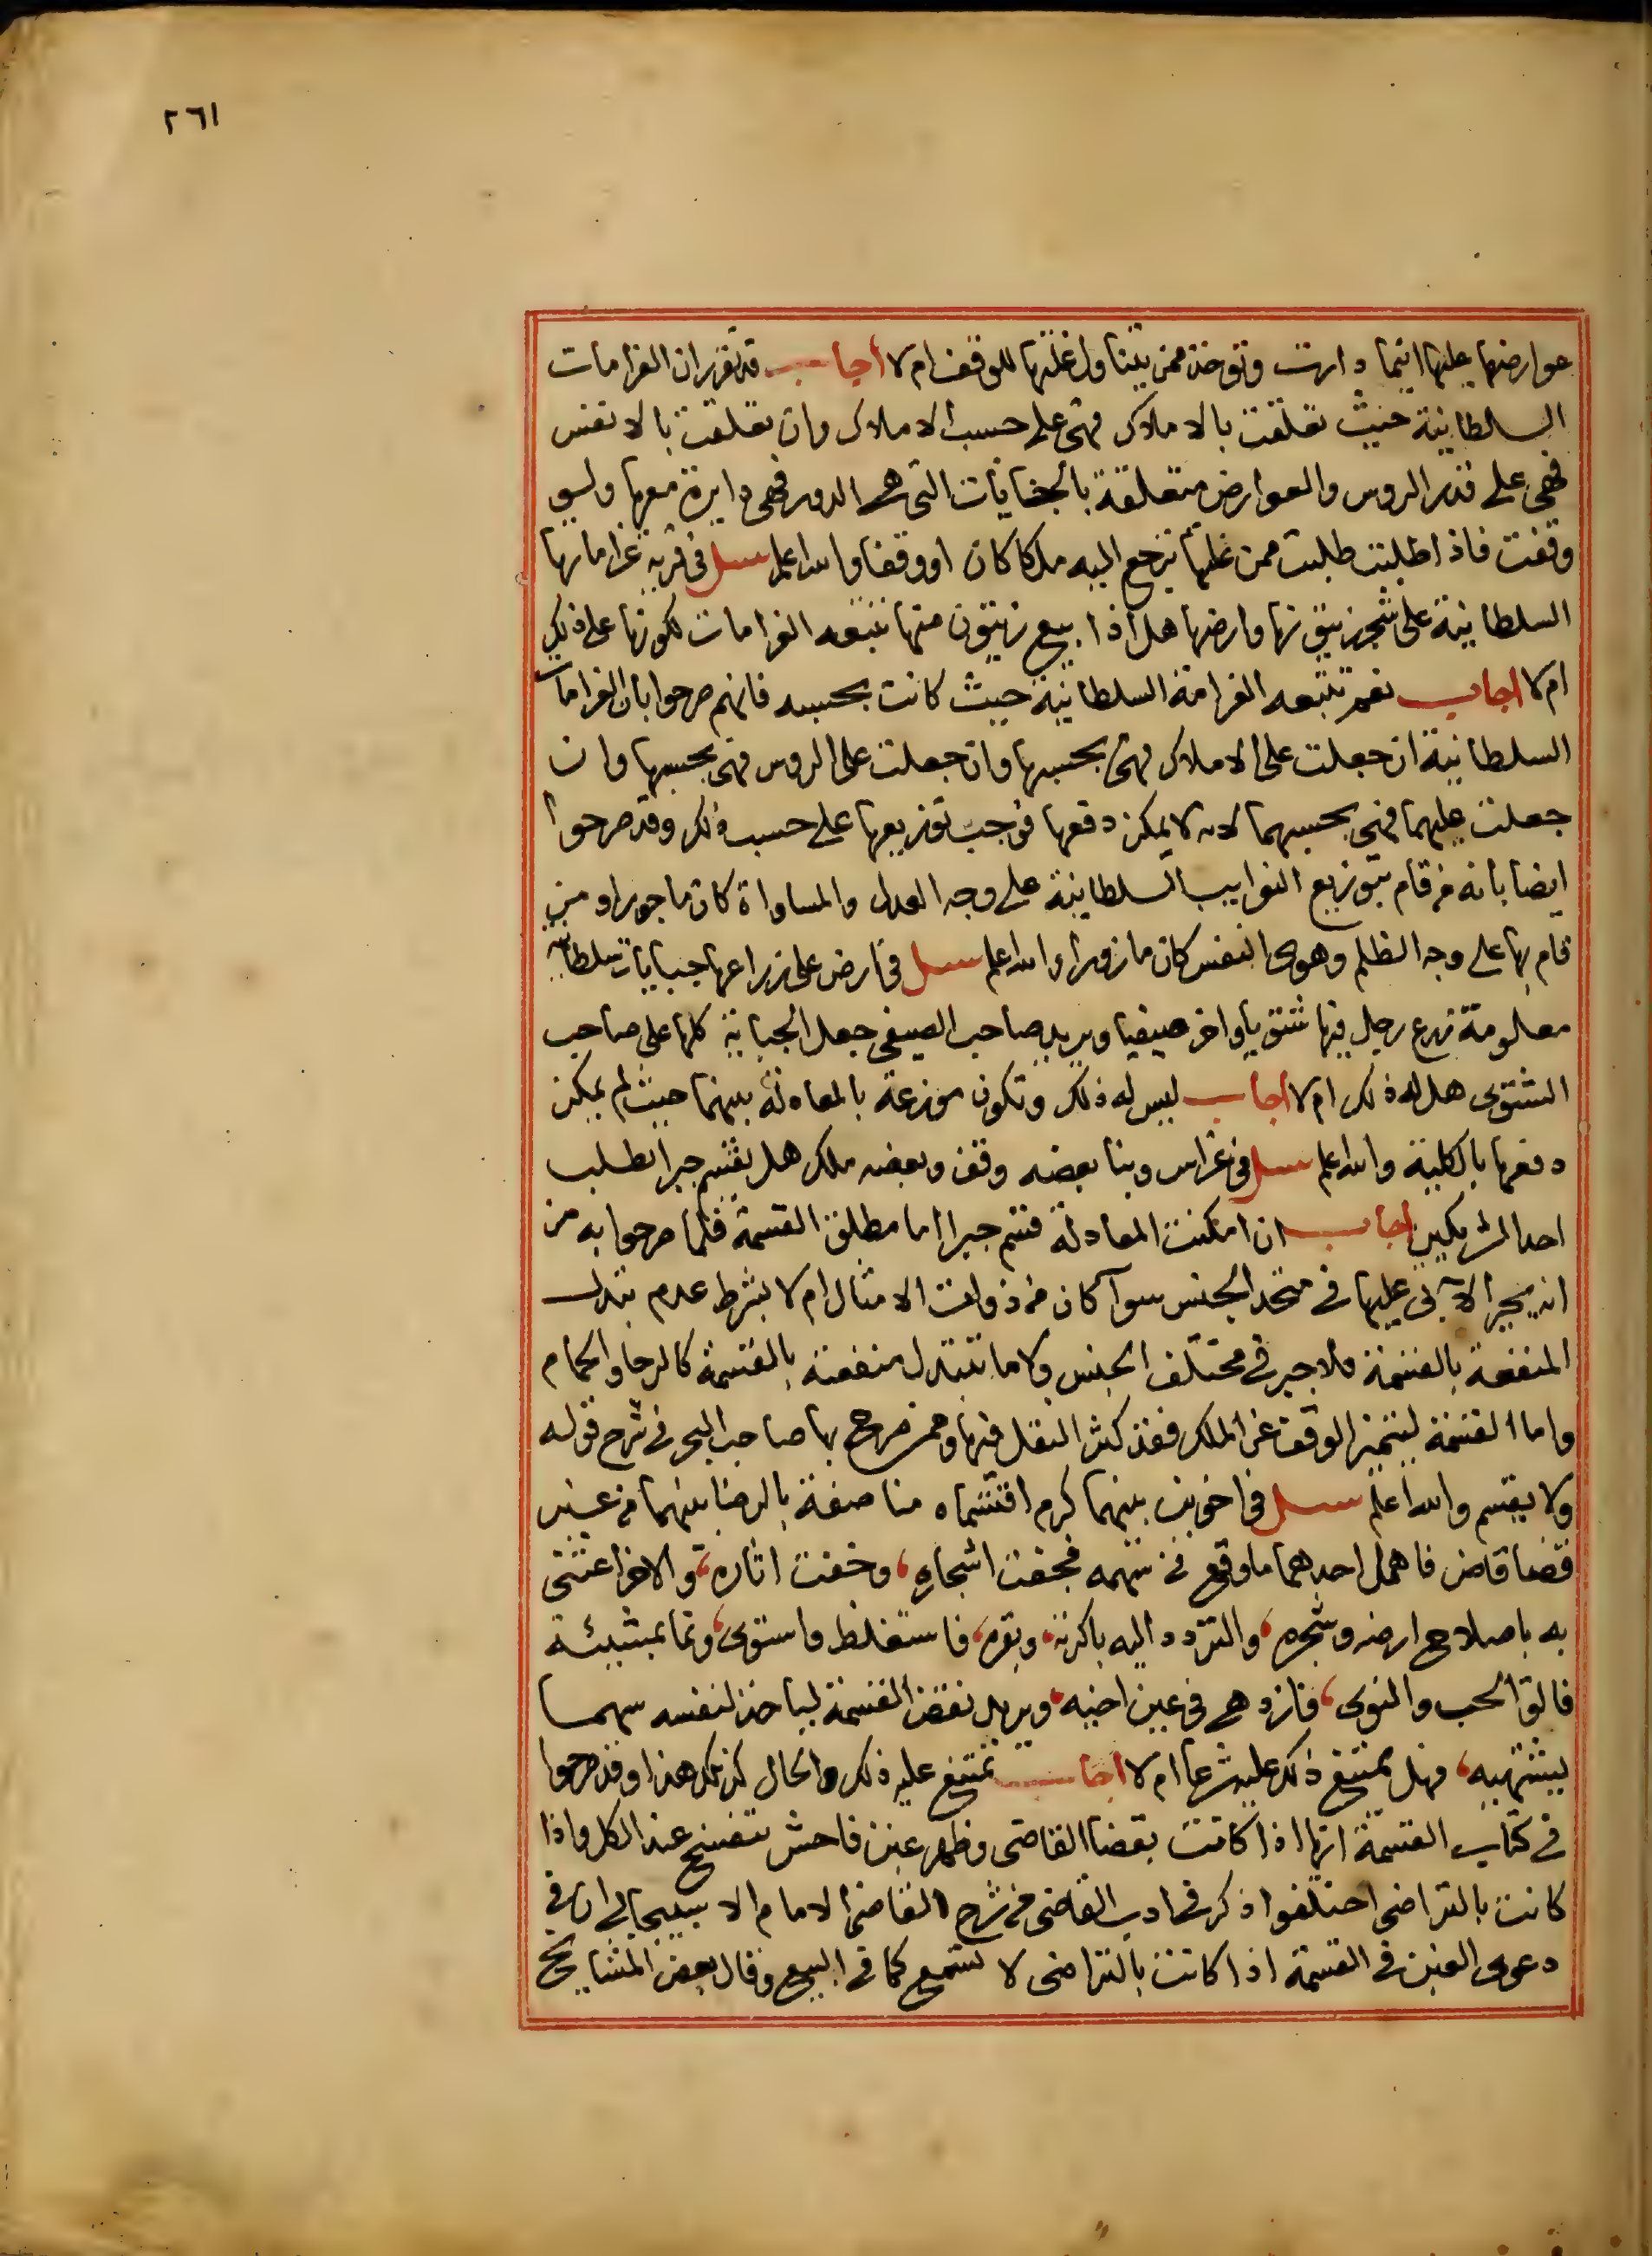 ٢٦١
عوارضها عليها اينما دارت وتوخذ ممن يتناول غلتها للوقف ام لا اجاب قد تقرر ان الغرامات
السلطانية حيث تعلقت بالاملاك فهى على حسب الاملاك وان تعلقت بالانفس
فهى على قدر الروس والعوارض متعلقة بالجنايات التى هى الدور فهى دايرة معها ولسو
وقفت فاذا طلبت طلبت ممن غلتها ترجع اليه ملكا كان او وقفا والله اعلم سىل فى قرية غراماتها
السلطانية على شجر زيتونها وارضها هل اذا بيع زيتون منها تتبعه الغرامات لكونها على ذلك
ام لا اجاب نعم تتبعه الغرامة السلطانية حيث كانت بحسبه فانهم صرحوا بان الغرامات
السلطانية ان جعلت على الاملاك فهى بحسبها وان جعلت على الروس فهى بحسبها وان
جعلت عليهما فهى بحسبهما لانه لا يمكن دفعها فوجب توزيعها على حسب ذلك وقد صرحوا
ايضا بانه من قام بتوزيع النوايب السلطانية على وجه العدل والمساواة كان ماجورا ومن
قام بها على وجه الظلم وهوى النفس كان مازورا والله اعلم سىل فى ارض على زراعها جبايات سلطانية
معلومة زرع رجل فيها شتويا واخر صيفيا ويريد صاحب الصيفى جعل الجباية كلها على صاحب
الشتوى هل له ذلك ام لا اجاب ليس له ذلك وتكون موزعة بالمعادلة بينهما حيث لم يمكن
دفعها بالكلية والله اعلم سىل فى غراس وبنا بعضه وقف وبعضه ملك هل يقسم جبرا بطلب
احد الشريكين اجاب ان امكنت المعادلة قسم جبرا اما مطلق القسمة فلما صرحوا به من
انه يجبر الآبى عليها فى متحد الجنس سوآ كان من ذوات الامثال ام لا بشرط عدم تبدل
المنفعة بالقسمة فلا جبر فى مختلف الجنس ولا ما تتبدل منفعته بالقسمة كالرحا والحمام
واما القسمة لتمييز الوقف عن الملك فقد كثر النقل فيها وممن صرح بها صاحب البحر فى شرح قوله
ولا يقسم والله اعلم سىل فى اخوين بينهما كرم اقتسماه مناصفة بالرضا بينهما من غير
قضا قاض فاهمل احدهما ما وقع فى سهمه فجفت اشجاره، وخفت اثاره، والاخر اعتنى
به باصلاح ارضه وشجره، والتردد اليه باكرته، وبقره، فاستغلظ واستوى، ونما بمشيئة
فالق الحب والنوى، فازدهى فى عين اخيه، ويريد نقض القسمة لياخذ لنفسه سهما
يشتهيه، فهل يمتنع ذلك عليه شرعا ام لا اجاب يمتنع عليه ذلك والحال كذلك هذا وقد صرحوا
فى كتاب القسمة انها اذا كانت بقضا القاضى وظهر غبن فاحش تنفسخ عند الكل واذا
كانت بالتراضى اختلفوا ذكر فى ادب القاضى من شرح القاضى الامام الاسبيجابى ان فى
دعوى الغبن فى القسمة اذا كانت بالتراضى لا تسمع كما فى البيع وقال بعض المشايخ